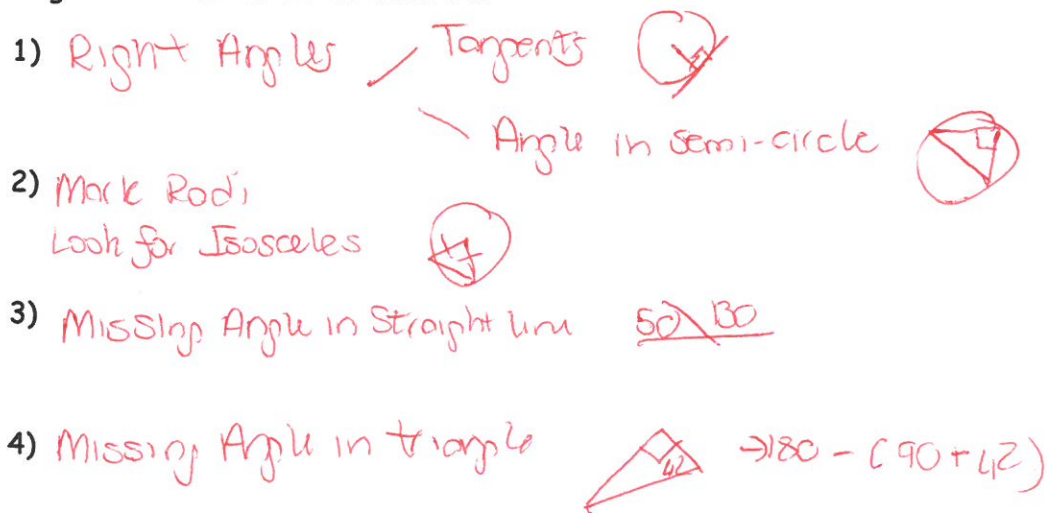 1) Right Angles Tangents
Angle in semi-circle
2) Mark Radii
Look for Isosceles
3) Missing Angle in Straight line 50 130
4) Missing Angle in triangle 42 →180 - (90 + 42)